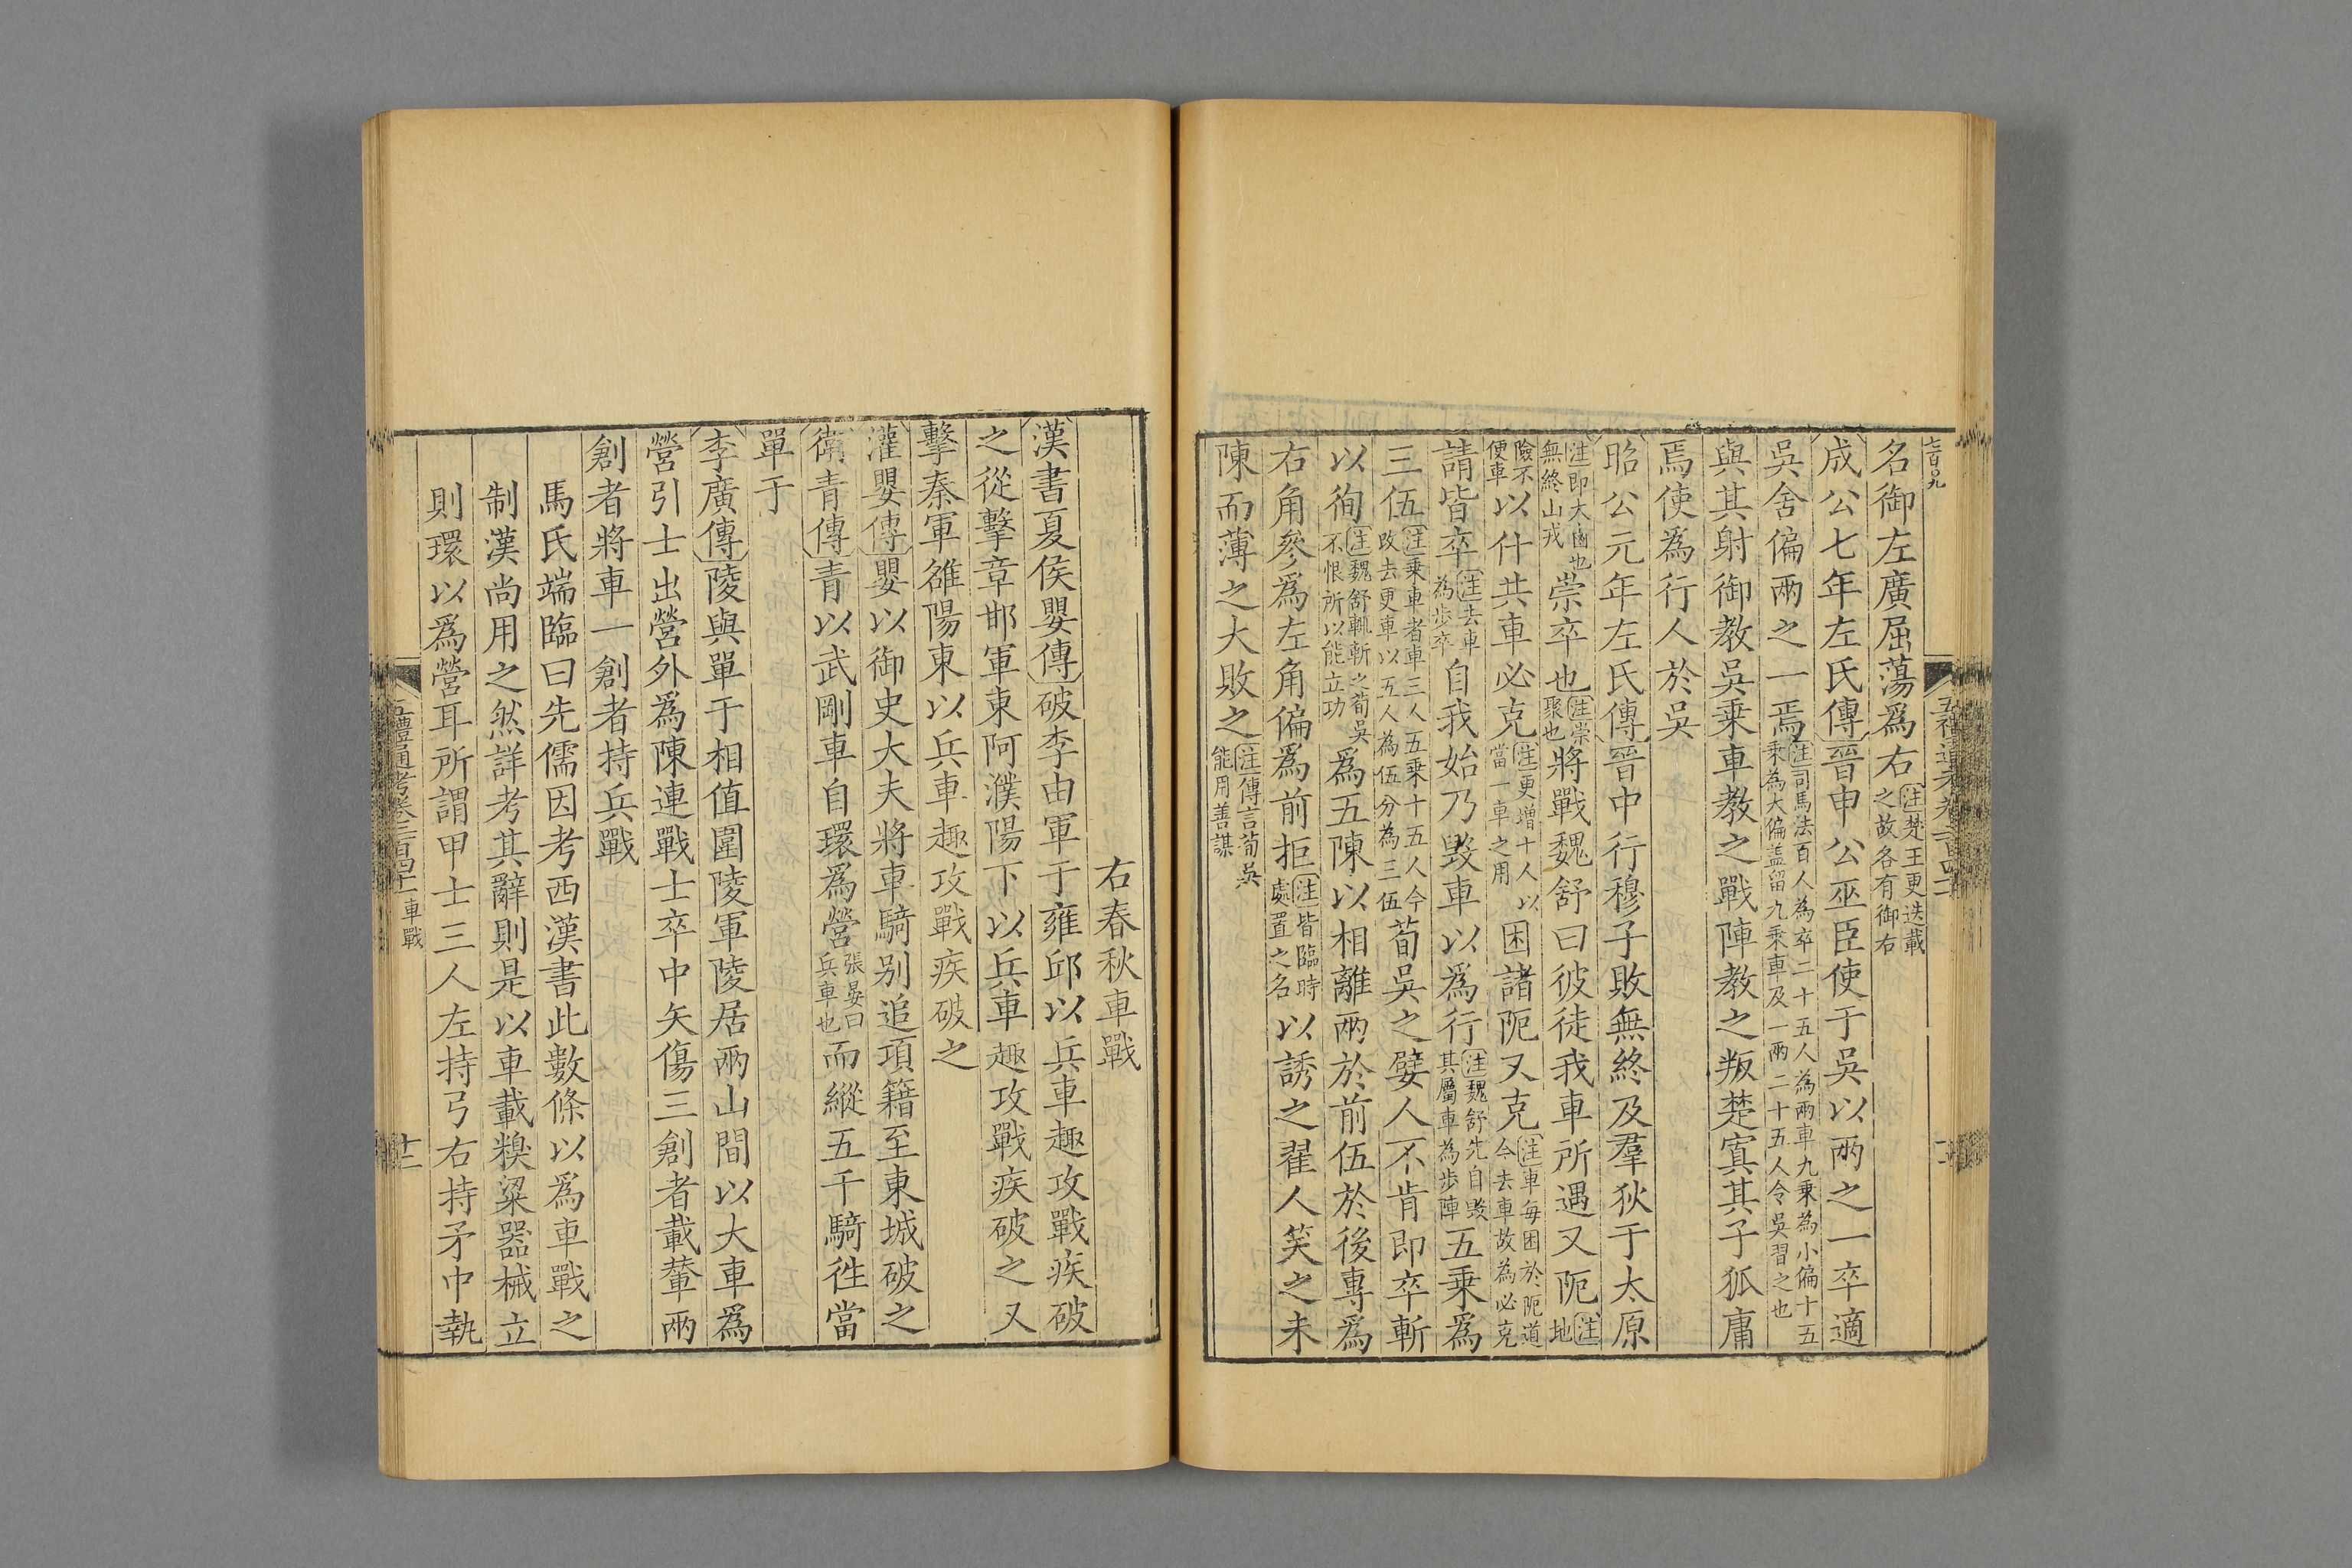 七百九
名御左廣屈蕩爲右注楚王更迭載之故各有御右
成公七年左氏傳晉申公巫臣使于吳以兩之一卒適
吳舍偏兩之一焉注司馬法百人為卒二十五人為兩車九乘為小偏十五乘為大偏盖留九乘車及一兩二十五人令吳習之也
與其射御教吳乗車教之戰陣教之叛楚寘其子狐庸
焉使爲行人於吳
昭公元年左氏傳晉中行穆子敗無終及羣狄于太原
注即大鹵也無終山戎崇卒也注崇聚也將戰魏舒曰彼徒我車所遇又阨注地
險不便車以什共車必克注更增十人以當一車之用困諸阨又克注車每困於阨道今去車故為必克
請皆卒注去車為步卒自我始乃毁車以爲行注魏舒先自毀其屬車為步陣五乗爲
三伍注乗車者車三人五乗十五人今改去更車以五人為伍分為三伍荀吳之嬖人不肯即卒斬
以徇注魏舒輒斬之荀吳不恨所以能立功爲五陳以相離兩於前伍於後專爲
右角參爲左角偏爲前拒注皆臨時處置之名以誘之翟人笑之未
陳而薄之大敗之注傳言荀吳能用善謀
右春秋車戰
漢書夏侯嬰傳破李由軍于雍邱以兵車趣攻戰疾破
之從擊章邯軍東阿濮陽下以兵車趣攻戰疾破之又
擊秦軍雒陽東以兵車趣攻戰疾破之
灌嬰傳嬰以御史大夫將車騎别追項籍至東城破之
衛青傳青以武剛車自環爲營張晏曰兵車也而縱五千騎徃當
單于
李廣傳陵與單于相值圍陵軍陵居兩山間以大車爲
營引士出營外爲陳連戰士卒中矢傷三創者載輦兩
創者將車一創者持兵戰
馬氏端臨曰先儒因考西漢書此數條以爲車戰之
制漢尚用之然詳考其辭則是以車載糗粱器械立
則環以爲營耳所謂甲士三人左持弓右持矛中執
五禮通考卷二百四十二 車戰
十二